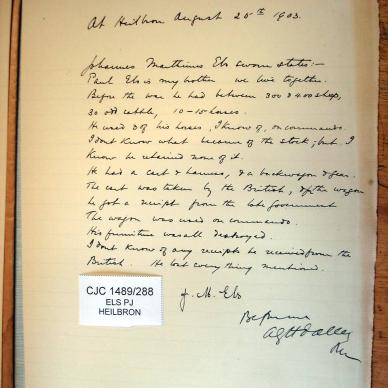 At Heilbron August 25th 1903.
Johannes Marthinus Els sworn states:-
Paul Els is my brother we live together.
Before the war he had between 300 & 400 sheep,
30 odd cattle, 10-15 horses.
He used 2 of his horses, I know of, on commando.
I dont know what became of the stock; but I
Know he retained none of it.
He had a cart & harness, & a buckwagon & gear.
The cart was taken by the British, & for the wagon
he got a receipt from the late Government
The wagon was used on commando.
His furniture was all destroyed.
I dont know of any receipts he received from the
British. He lost everything mentioned.
J. M. Els
Before me
CJC 1489/288
ELS PJ
HEILBRON